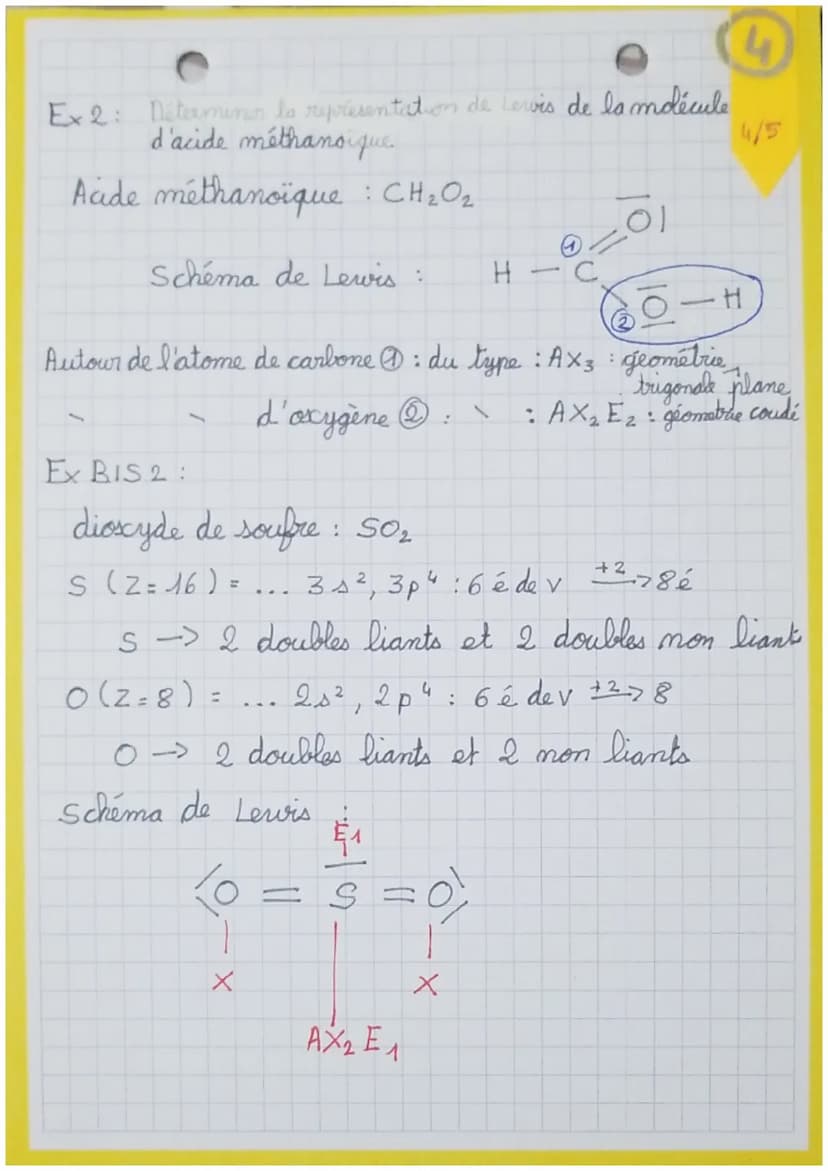 4
4/5
Ex 2 : Déterminer la représentation de Lewis de la molécule
d'acide méthanoïque.
Acide méthanoïque : CH₂O₂
Schéma de Lewis : H — C O O — H
① ②
Autour de l'atome de carbone ① : du type : AX₃ : géométrie
trigonale plane
\ \ d'oxygène ② : \ : AX₂E₂ : géométrie coudé
Ex BIS 2 :
dioxyde de soufre : SO₂
S (Z = 16) = ... 3s², 3p⁴ : 6 é de v +2→ 8é
S → 2 doubles liants et 2 doubles non liant
O (Z = 8) = ... 2s², 2p⁴ : 6 é de v +2→ 8
O → 2 doubles liants et 2 non liants
Schéma de Lewis :
E1
O = S = O
X X
AX₂ E₁